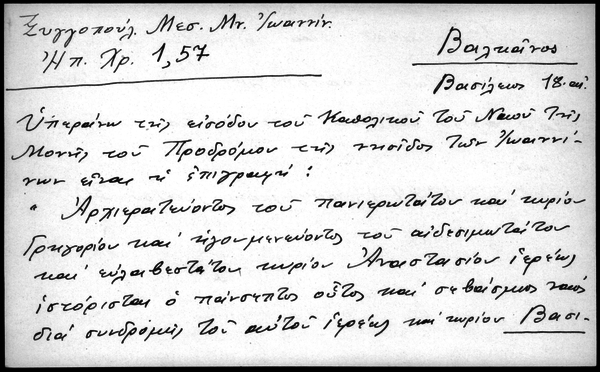 Ξυγγοπούλ. Μεσ. Μν. Ἰωαννίν.
Ἠπ. Χρ. 1,57
Βαλκᾶνος
Βασίλειος 18. αἰ.
Ὑπεράνω τῆς εἰσόδου τοῦ Καθολικοῦ τοῦ Ναοῦ τῆς
Μονῆς τοῦ Προδρόμου τῆς νησίδος τῶν Ἰωαννί-
νων εἶναι ἡ ἐπιγραφή :
" Ἀρχιερατεύοντος τοῦ πανιερωτάτου καὶ κυρίου
Γρηγορίου καὶ ἡγουμενεύοντος τοῦ αἰδεσιμωτάτου
καὶ εὐλαβεστάτου κυρίου Ἀναστασίου ἱερέως
ἱστόρισται ὁ πάνσεπτος οὗτος καὶ σεβάσμιος ναὸς
διὰ συνδρομῆς τοῦ αὐτοῦ ἱερέως καὶ κυρίου Βασι-